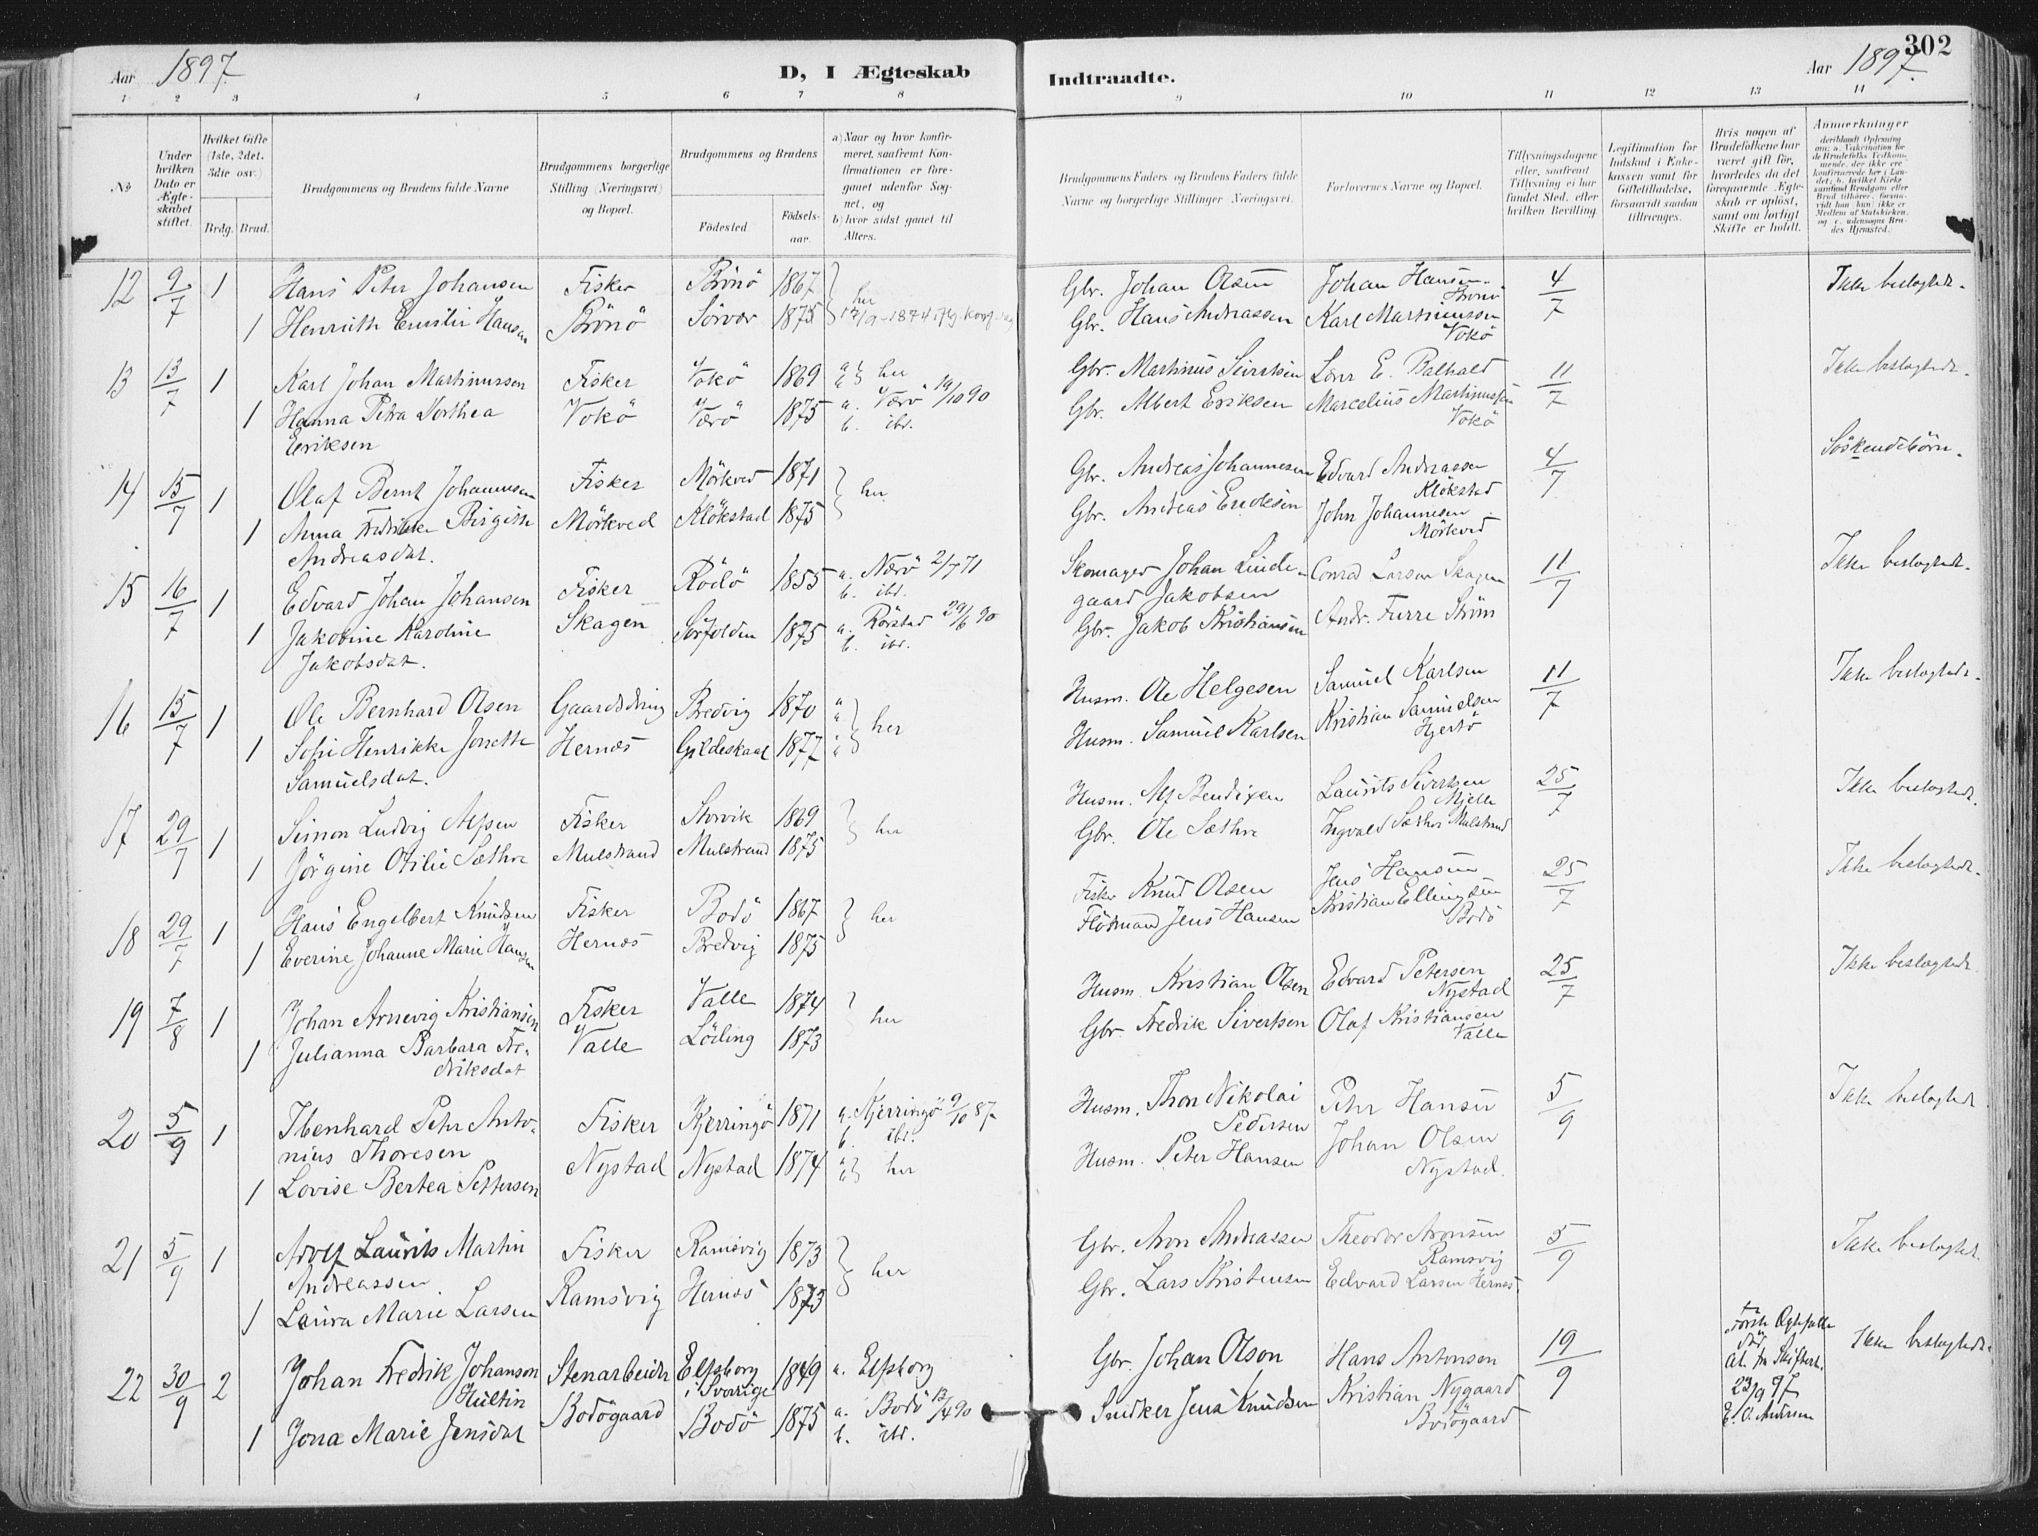 302
Aar 1897.
D, I Ægteskab
Indtraadte.
Aar 1897.
1 2 3 4 5 6 7 8 9 10 11 12 13 14
No
Under hvilken Dato er Ægteskabet stiftet.
Hvilket Gifte (1ste, 2det. 3die osv.)
Brdg. Brud.
Brudgommens og Brudens fulde Navne
Brudgommens borgerlige Stilling (Næringsvei) og Bopæl.
Brudgommens og Brudens
Fødested
Fødselsaar.
a) Naar og hvor konfirmeret, saafremt Konfirmationen er foregaaet udenfor Sognet, og
b) hvor sidst gaaet til Alters.
Brudgommens Faders og Brudens Faders fulde Navne og borgerlige Stillinger Næringsvei.
Forlovernes Navne og Bopæl.
Tillysningsdagene eller, saafremt Tillysning ei har fundet Sted, efter hvilken Bevilling.
Legitimation for Indskud i Enkekassen samt for Giftetilladelse, forsaavidt saadan tiltrænges.
Hvis nogen af Brudefolkene har været gift før, hvorledes da det foregaaende Ægteskab er opløst, samt om lovligt Skifte er holdt.
Anmærkninger
12 9/7 1 Hans Peter Johansen Fisker Brönö 1867 Gbr. Johan Olsen Johan Hansen Brönö 4/7 Ikke beslægtede.
1 Henriette Emilie Hansen Brönö Sörvær 1875 her Gbr. Hans Andreassen Karl Martinussen Vokö
13 13/7 1 Karl Johan Martinussen Fisker Vokö 1869 a. b. her Gbr. Martinus Sivertsen Lærer E. Balhald 11/7 Ikke beslægtede.
1 Hanna Petra Dorthea Vokö Værö 1875 a. Værö 19/10 90 Gbr. Albert Eriksen Marcelius Martinussen Vokö
Eriksen b. ibd.
14 15/7 1 Olaf Bernt Johannesen Fisker Mörkved 1871 her Gbr. Andreas Johannesen Edvard Andreassen Klökstad 4/7 Söskendebörn.
1 Anna Fredrikke Birgitte Mörkved Klökstad 1875 Gbr. Andreas Endresen John Johannesen Mörkved
Andreasdat.
15 16/7 1 Edvard Johan Johansen Fisker Rödö 1855 a. Nærö 2/7 71 Skomager Johan Linde- Conrad Larsen Skagen 11/7 Ikke beslægtede.
b. ibd. gaard Jakobsen
1 Jakobine Karoline Skagen Sörfolden 1875 a. Rörstad 29/6 90 Gbr. Jakob Kristiansen Andr. Furre Ström
Jakobsdat. b. ibd.
16 15/7 1 Ole Bernhard Olsen Gaarddreng Bredvig 1870 her Husm. Ole Helgesen Samuel Karlsen 11/7 Ikke beslægtede.
1 Sofie Henrikke Jonette Hernæs Gildeskaal 1877 Husm. Samuel Karlsen Kristian Samuelsen Hjertö
Samuelsdat.
17 29/7 1 Simon Ludvig Alfsen Fisker Storvik 1869 her Husm. Alf Bendixen Laurits Sivertsen Mjelle 25/7 Ikke beslægtede.
1 Jörgine Otilie Sæthre Mulstrand Mulstrand 1875 Gbr. Ole Sæthre Ingvald Sæther Mulstrand
18 29/7 1 Hans Engelbert Knudsen Fisker Bodö 1867 her Fisker Knud Olsen Jens Hansen 25/7 Ikke beslægtede.
1 Everine Johanne Marie Hansen Hernæs Bredvig 1875 Flödmand Jens Hansen Kristian Ellingsen Bodö
19 7/8 1 Johan Arnevig Kristiansen Fisker Valle 1874 her Husm. Kristian Olsen Edvard Petersen Nystad 25/7 Ikke beslægtede
1 Julianna Barbara Fre- Valle Löding 1873 Gbr. Fredrik Sivertsen Olaf Kristiansen Valle
driksdat
20 5/9 1 Ibenhard Peter Anto- Fisker Kjerringö 1871 a. Kjerringö 9/10 87 Husm. Thor Nikolai Peder Hansen 5/9 Ikke beslægtet
nius Thoresen b. ibd. Pedersen
1 Lovise Bertea Pettersen Nystad Nystad 1874 a. b. her Husm. Peter Hansen Johan Olsen Nystad.
21 5/9 1 Adolf Laurits Martin Fisker Ramsvig 1873 her Gbr. Aron Andreassen Theodor Aronsen Ramsvig 5/9 Ikke beslægtet.
Andreassen
1 Laura Marie Larsen Ramsvig Hernæs 1873 Gbr. Lars Kristensen Edvard Larsen Hernæs.
22 30/9 2 Johan Fredrik Johanson Stenarbeider Elfsborg i Sverrige 1849 a. Elfsborg Gbr. Johan Olson Hans Antonsen 19/9 Förste Ægtefælle död At. fra Skifter. 23/9 97 E. O. Andersen Ikke beslægtede.
Hultin
1 Jona Marie Jensdat Bodögaard Bodö 1875 a. Bodö 13/4 90 Snedker Jens Knudsen Kristian Nygaard Bodögaard
b. ibd.